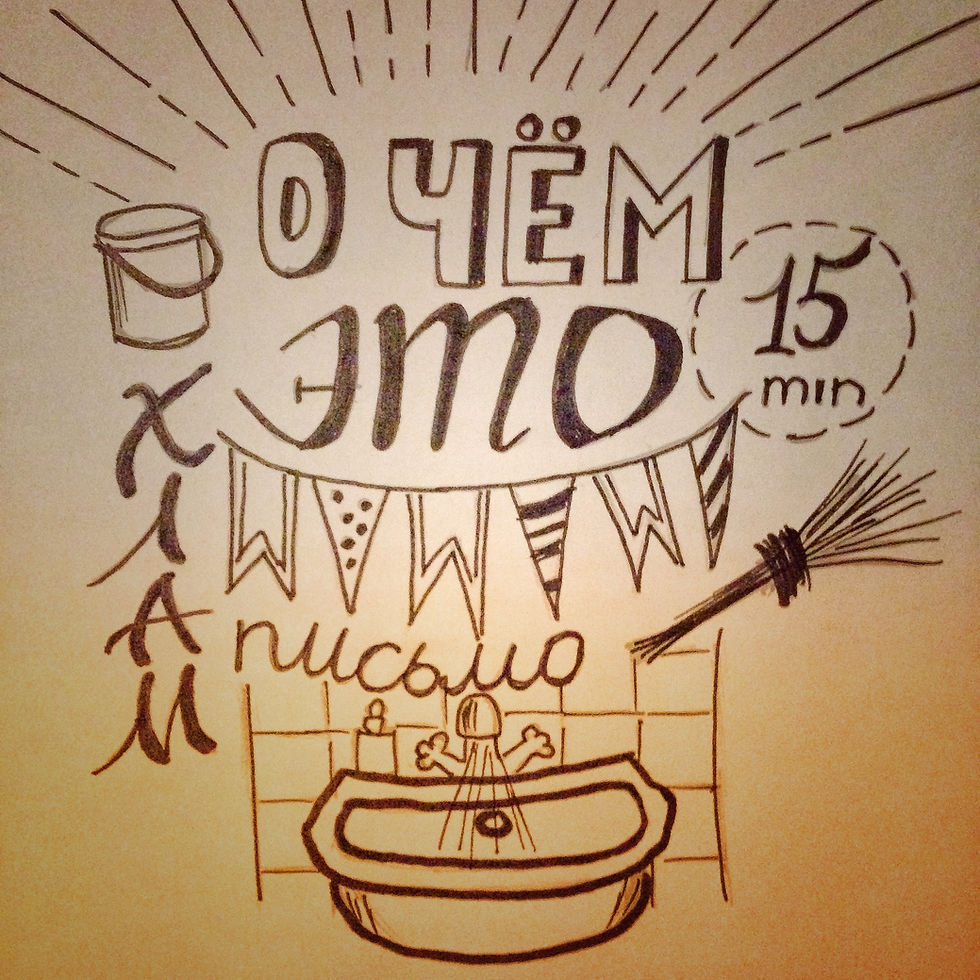 О ЧЁМ
ЭТО
15
min
ХЛАМ
письмо